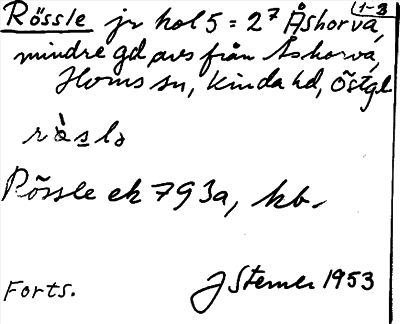 Rössle jr kol 5 = 2⁷ Åshorva, 1-3
mindre gd avs från Åshorva,
Horns sn, Kinda hd, Östgl
ràslə
Rössle ek 793a, kb.
Forts. J Sterner 1953